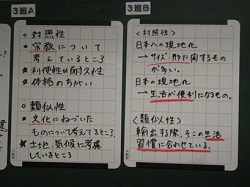 3班A
○対照性
・常数について
考えているところ
★利便性と耐久性
・体格のちがい
○類似性
★文化にねづいた
ものについて考えてるところ
★土地、気候に考慮
しているところ
3班B
〈対照性〉
日本への現地化
→サイズ・形に関するもの
が多い。
日本の現地化
→生活が便利になるもの。
〈類似性〉
輸出形際、そこの生活
習慣に合わせている。